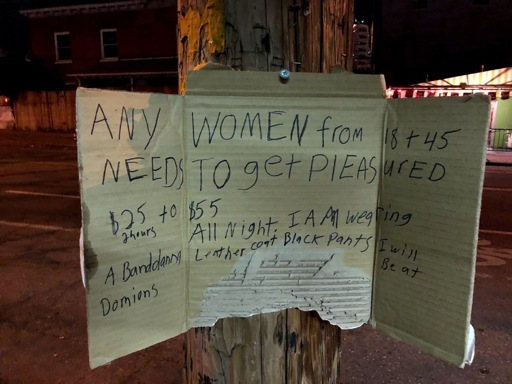 ANY WOMEN from 18 + 45
NEEDS TO get PlEASURED
$25 to $55
2hours All Night. I AM wearing
Lether coat Black Pants I will
A Bandolanna Be at
Domions